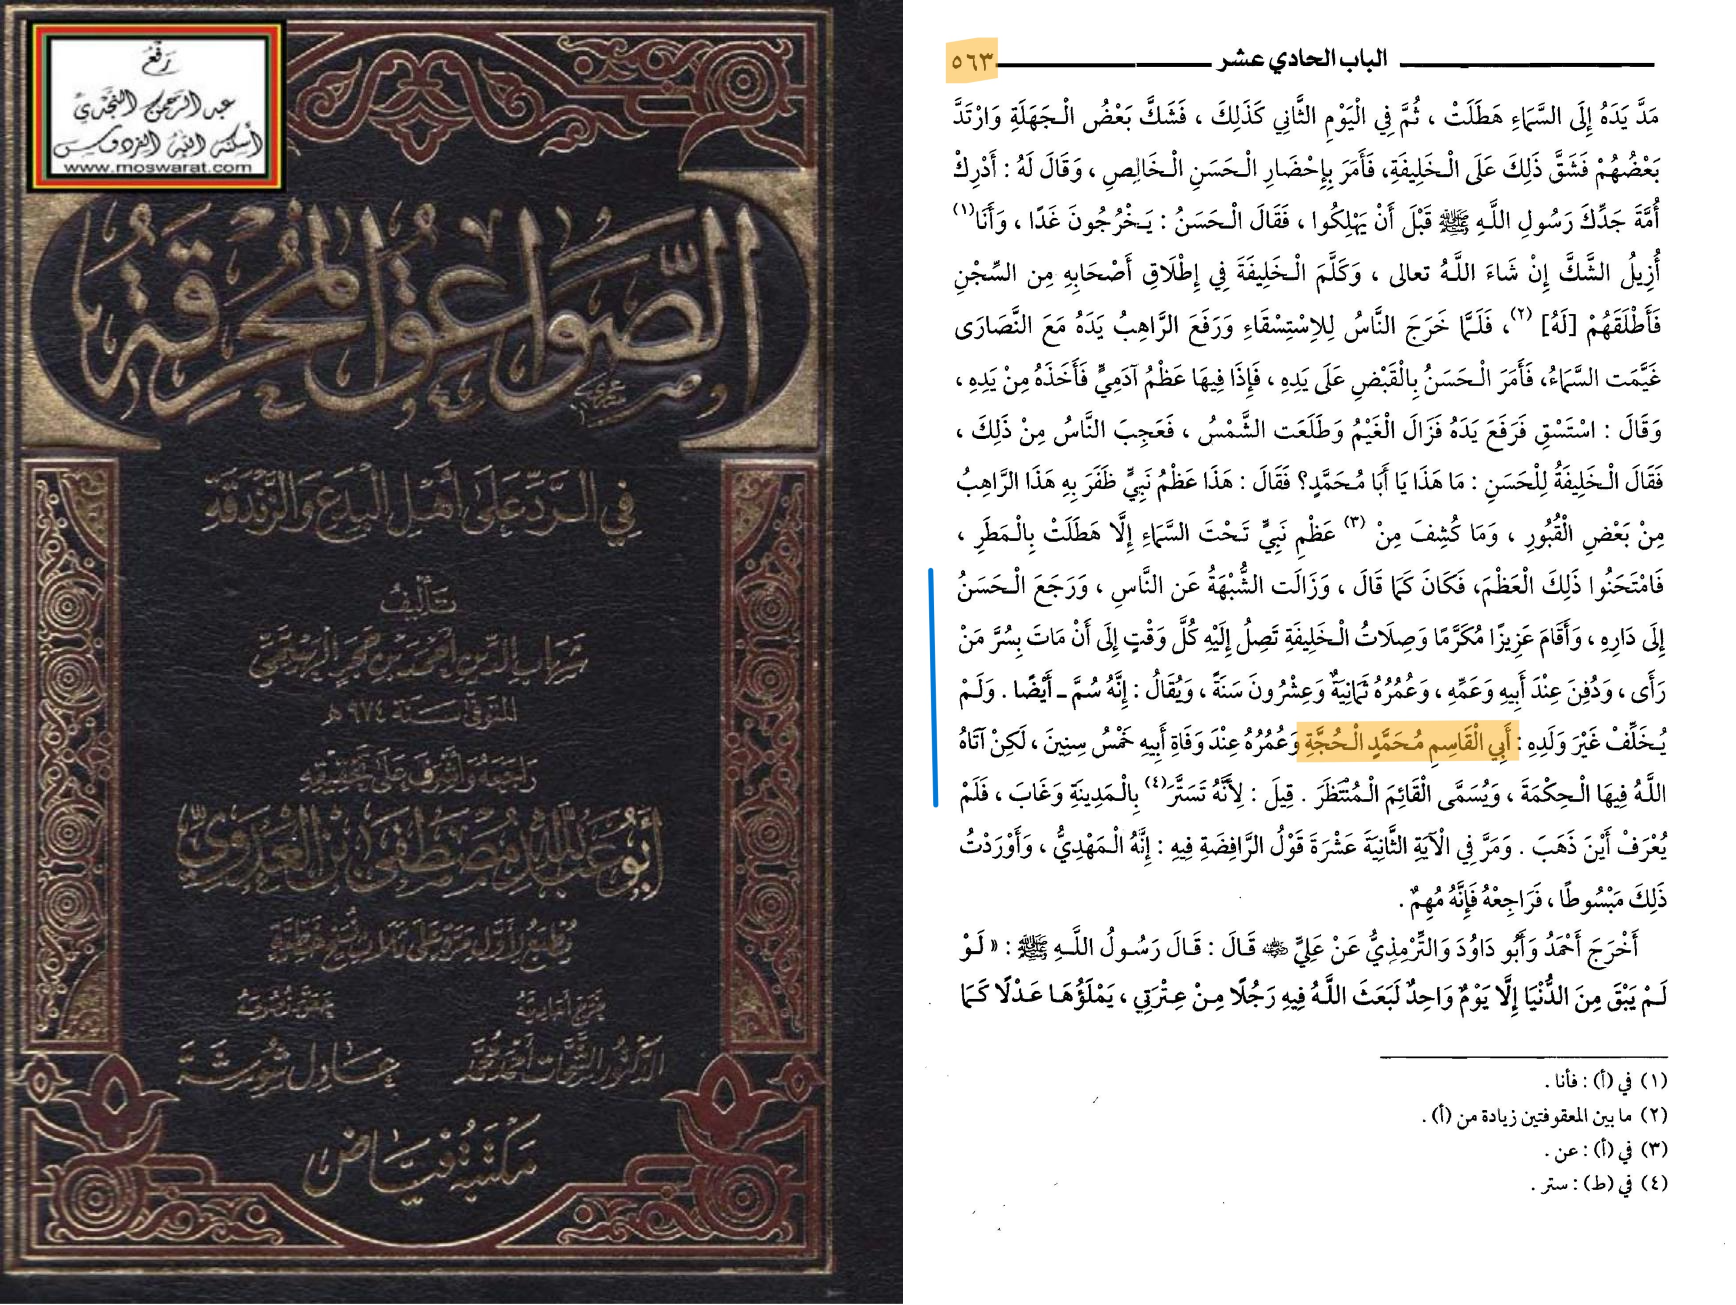 رفع
عبد الرحمن النجدي
أسكنه الله الفردوس
www.moswarat.com
الصَّوَاعِقُ المُحْرِقَةُ
في الرد على أهل البدع والزندقة
تأليف
شهاب الدين أحمد بن حجر الهيتمي
المتوفى سنة ٩٧٤ هـ
راجعه وأشرف على تحقيقه
أبو عبد الله مصطفى بن العدوي
يطبع لأول مرة على ثلاث نسخ خطية
تخريج أحاديثه
الدكتور الشحات أحمد محمد
عادل شوشة
مكتبة فياض
الباب الحادي عشر
٥٦٣
مَدَّ يَدَهُ إِلَى السَّمَاءِ هَطَلَتْ ، ثُمَّ فِي الْيَوْمِ الثَّانِي كَذَلِكَ ، فَشَكَّ بَعْضُ الْجَهَلَةِ وَارْتَدَّ
بَعْضُهُمْ فَشَقَّ ذَلِكَ عَلَى الْخَلِيفَةِ، فَأَمَرَ بِإِحْضَارِ الْحَسَنِ الْخَالِصِ ، وَقَالَ لَهُ : أَدْرِكْ
أُمَّةَ جَدِّكَ رَسُولِ اللَّهِ ﷺ قَبْلَ أَنْ يَهْلِكُوا ، فَقَالَ الْحَسَنُ : يَخْرُجُونَ غَدًا ، وَأَنَا(١)
أُزِيلُ الشَّكَّ إِنْ شَاءَ اللَّهُ تعالى ، وَكَلَّمَ الْخَلِيفَةَ فِي إِطْلَاقِ أَصْحَابِهِ مِن السِّجْنِ
فَأَطْلَقَهُمْ [لَهُ] (٢)، فَلَمَّا خَرَجَ النَّاسُ لِلِاسْتِسْقَاءِ وَرَفَعَ الرَّاهِبُ يَدَهُ مَعَ النَّصَارَى
غَيَّمَت السَّمَاءُ، فَأَمَرَ الْحَسَنُ بِالْقَبْضِ عَلَى يَدِهِ ، فَإِذَا فِيهَا عَظْمُ آدَمِيٍّ فَأَخَذَهُ مِنْ يَدِهِ ،
وَقَالَ : اسْتَسْقِ فَرَفَعَ يَدَهُ فَزَالَ الْغَيْمُ وَطَلَعَت الشَّمْسُ ، فَعَجِبَ النَّاسُ مِنْ ذَلِكَ ،
فَقَالَ الْخَلِيفَةُ لِلْحَسَنِ : مَا هَذَا يَا أَبَا مُحَمَّدٍ؟ فَقَالَ : هَذَا عَظْمُ نَبِيٍّ ظَفَرَ بِهِ هَذَا الرَّاهِبُ
مِنْ بَعْضِ الْقُبُورِ ، وَمَا كُشِفَ مِنْ (٣) عَظْمِ نَبِيٍّ تَحْتَ السَّمَاءِ إِلَّا هَطَلَتْ بِالْمَطَرِ ،
فَامْتَحَنُوا ذَلِكَ الْعَظْمَ، فَكَانَ كَمَا قَالَ ، وَزَالَت الشُّبْهَةُ عَن النَّاسِ ، وَرَجَعَ الْحَسَنُ
إِلَى دَارِهِ ، وَأَقَامَ عَزِيزًا مُكَرَّمًا وَصِلَاتُ الْخَلِيفَةِ تَصِلُ إِلَيْهِ كُلَّ وَقْتٍ إِلَى أَنْ مَاتَ بِسُرَّ مَنْ
رَأَى ، وَدُفِنَ عِنْدَ أَبِيهِ وَعَمِّهِ ، وَعُمُرُهُ ثَمَانِيَةٌ وَعِشْرُونَ سَنَةً ، وَيُقَالُ : إِنَّهُ سُمَّ ـ أَيْضًا . وَلَمْ
يُخَلِّفْ غَيْرَ وَلَدِهِ : أَبِي الْقَاسِمِ مُحَمَّدٍ الْحُجَّةِ وَعُمُرُهُ عِنْدَ وَفَاةِ أَبِيهِ خَمْسُ سِنِينَ ، لَكِنْ آتَاهُ
اللَّهُ فِيهَا الْحِكْمَةَ ، وَيُسَمَّى الْقَائِمَ الْمُنْتَظَرَ . قِيلَ : لِأَنَّهُ تَسَتَّرَ(٤) بِالْمَدِينَةِ وَغَابَ ، فَلَمْ
يُعْرَفْ أَيْنَ ذَهَبَ . وَمَرَّ فِي الْآيَةِ الثَّانِيَةَ عَشْرَةَ قَوْلُ الرَّافِضَةِ فِيهِ : إِنَّهُ الْمَهْدِيُّ ، وَأَوْرَدْتُ
ذَلِكَ مَبْسُوطًا ، فَرَاجِعْهُ فَإِنَّهُ مُهِمٌ .
أَخْرَجَ أَحْمَدُ وَأَبُو دَاوُدَ وَالتِّرْمِذِيُّ عَنْ عَلِيٍّ رضي الله عنه قَالَ : قَالَ رَسُولُ اللَّهِ ﷺ : « لَوْ
لَمْ يَبْقَ مِنَ الدُّنْيَا إِلَّا يَوْمٌ وَاحِدٌ لَبَعَثَ اللَّهُ فِيهِ رَجُلًا مِنْ عِتْرَتِي ، يَمْلَؤُهَا عَدْلًا كَمَا
(١) في (أ) : فأنا .
(٢) ما بين المعقوفتين زيادة من (أ) .
(٣) في (أ) : عن .
(٤) في (ط) : ستر .